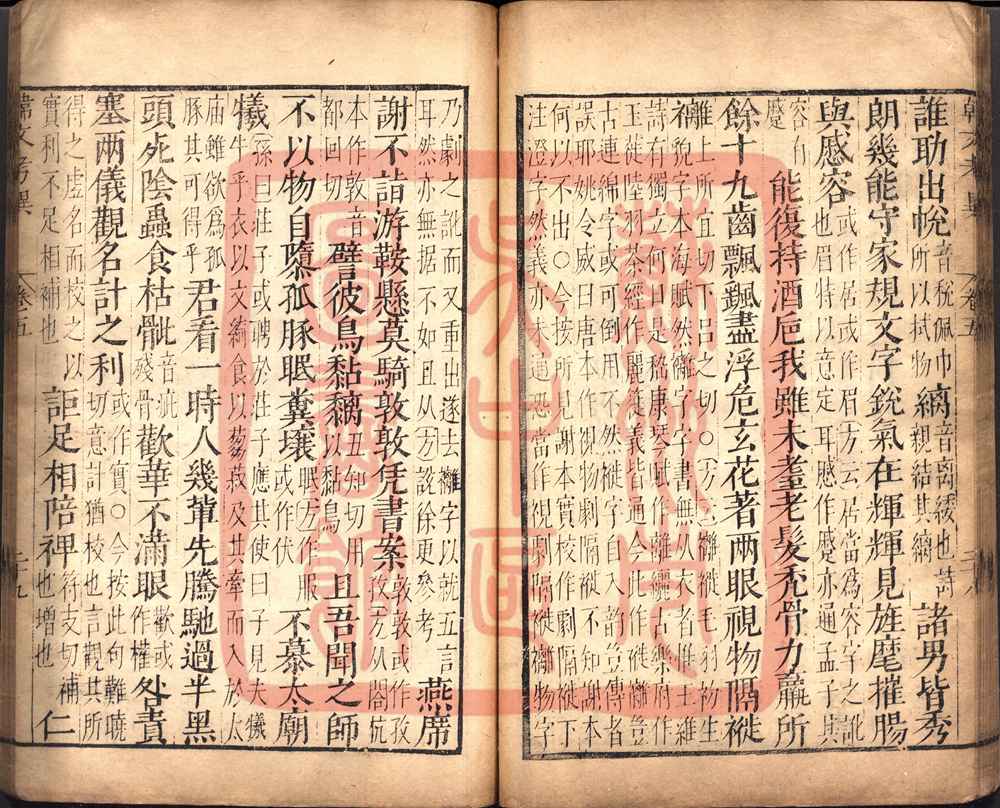 誰助出帨音稅佩巾所以拭物縭音离緌也詩親結其縭諸男皆秀
朗幾能守家規文字銳氣在輝輝見旌麾摧腸
與慼容或作居或作眉(方)云居當為容字之訛也眉特以意定耳慼作蹙亦通孟子
容有蹙能復持酒卮我雖未耋老髮禿骨力羸所
餘十九齒飄飄盡浮危玄花著兩眼視物隔褷
褵上所宜切下呂之切○(方)云褵褷毛羽物生
貌字本海賦然褵字字書無从衣者惟王維
詩有獨立何曰是嵇康琴賦作離纚古樂府作
玉徒陸羽茶經作麗蓰義皆通今此作褷離豈
古連綿字或可倒用不然褷字自入韻豈傳者
誤耶姚令威曰唐本作視物劇隔褷不知謝本
何以不出○今按所見謝本實校作劇隔褷下
注澄字然義亦未通恐當作視劇隔褷褵物字
韓文考異 卷五
乃劇之訛而又重出遂去褵字以就五言
耳然亦無据不如且从(方)說徐更參考燕席
謝不詣游鞍懸莫騎敦敦凭書案敦敦或作孜孜(方)从閣杭
本作敦音都回切譬彼鳥黏黐丑知切用以黏鳥且吾聞之師
不以物自隳孤豚眠糞壤眠(方)作服或作伏不慕太廟
犧孫曰莊子或聘於莊子莊子應其使曰子見夫犧
牛乎衣以文繡食以芻菽及其牽而入於太
廟雖欲為孤豚其可得乎君看一時人幾輩先騰馳過半黑
頭死陰蟲食枯骴音疵殘骨歡華不滿眼歡或作權咎責
塞兩儀觀名計之利切或作實○今按此句難曉切意計猶校也言觀其所
得之虛名而校之以實利不足相補也詎足相陪裨符支切補也增也仁
韓文考異 卷五 二十九